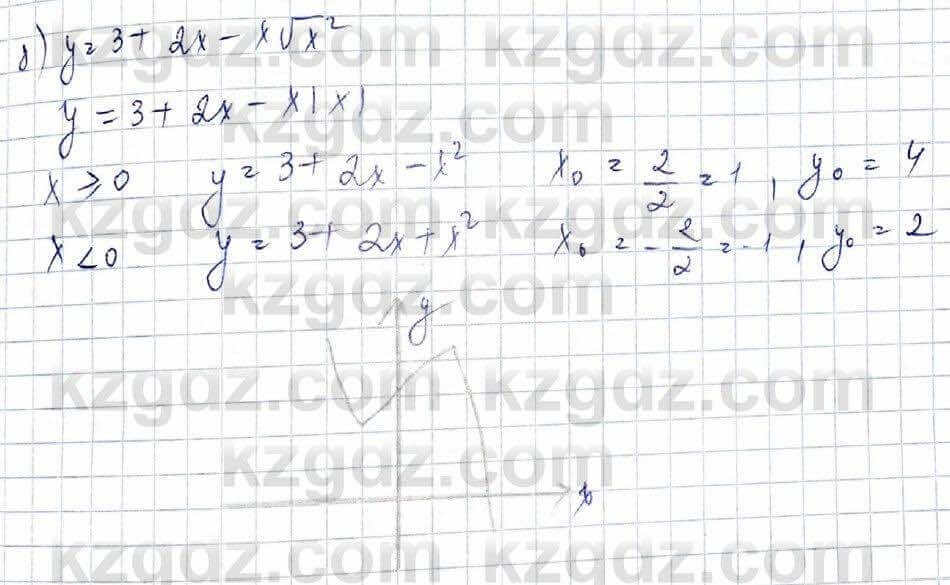 δ) y = 3 + 2x - x√x²
y = 3 + 2x - x|x|
x ⩾ 0 y = 3 + 2x - x² x₀ = 2/2 = 1, y₀ = 4
x < 0 y = 3 + 2x + x² x₀ = -2/2 = -1, y₀ = 2
y
x
kzgdz.com kzgdz.com
kzgdz.com
kzgdz.com kzgdz.com
kzgdz.com
kzgdz.com kzgdz.com
kzgdz.com
kzgdz.com kzgdz.com